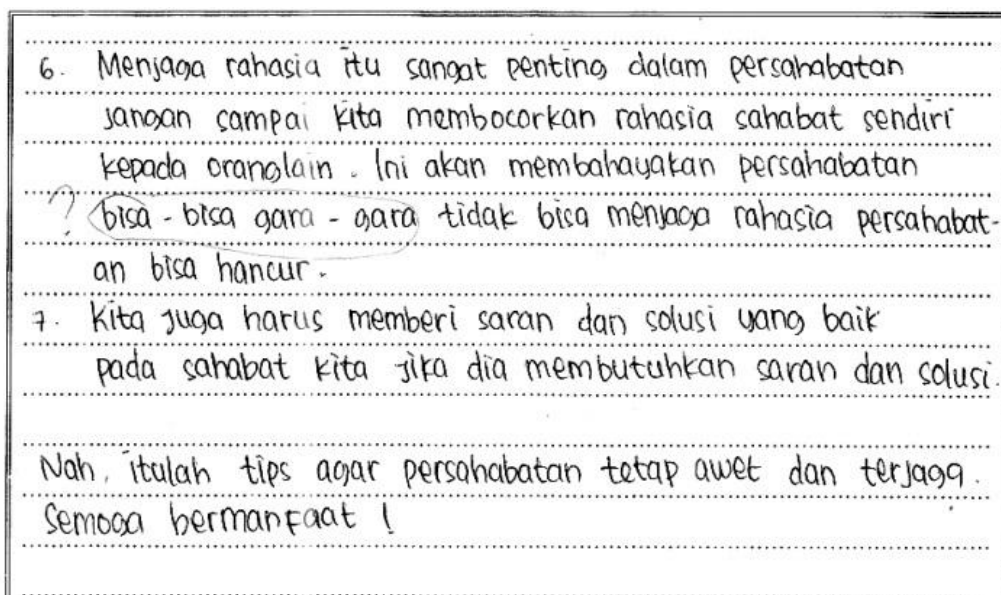 6. Menjaga rahasia itu sangat penting dalam persahabatan
jangan sampai kita membocorkan rahasia sahabat sendiri
kepada oranglain. Ini akan membahayakan persahabatan
? bisa - bisa gara - gara tidak bisa menjaga rahasia persahabat-
an bisa hancur.
7. Kita juga harus memberi saran dan solusi yang baik
pada sahabat kita jika dia membutuhkan saran dan solusi.
Nah, itulah tips agar persahabatan tetap awet dan terjaga.
Semoga bermanfaat !